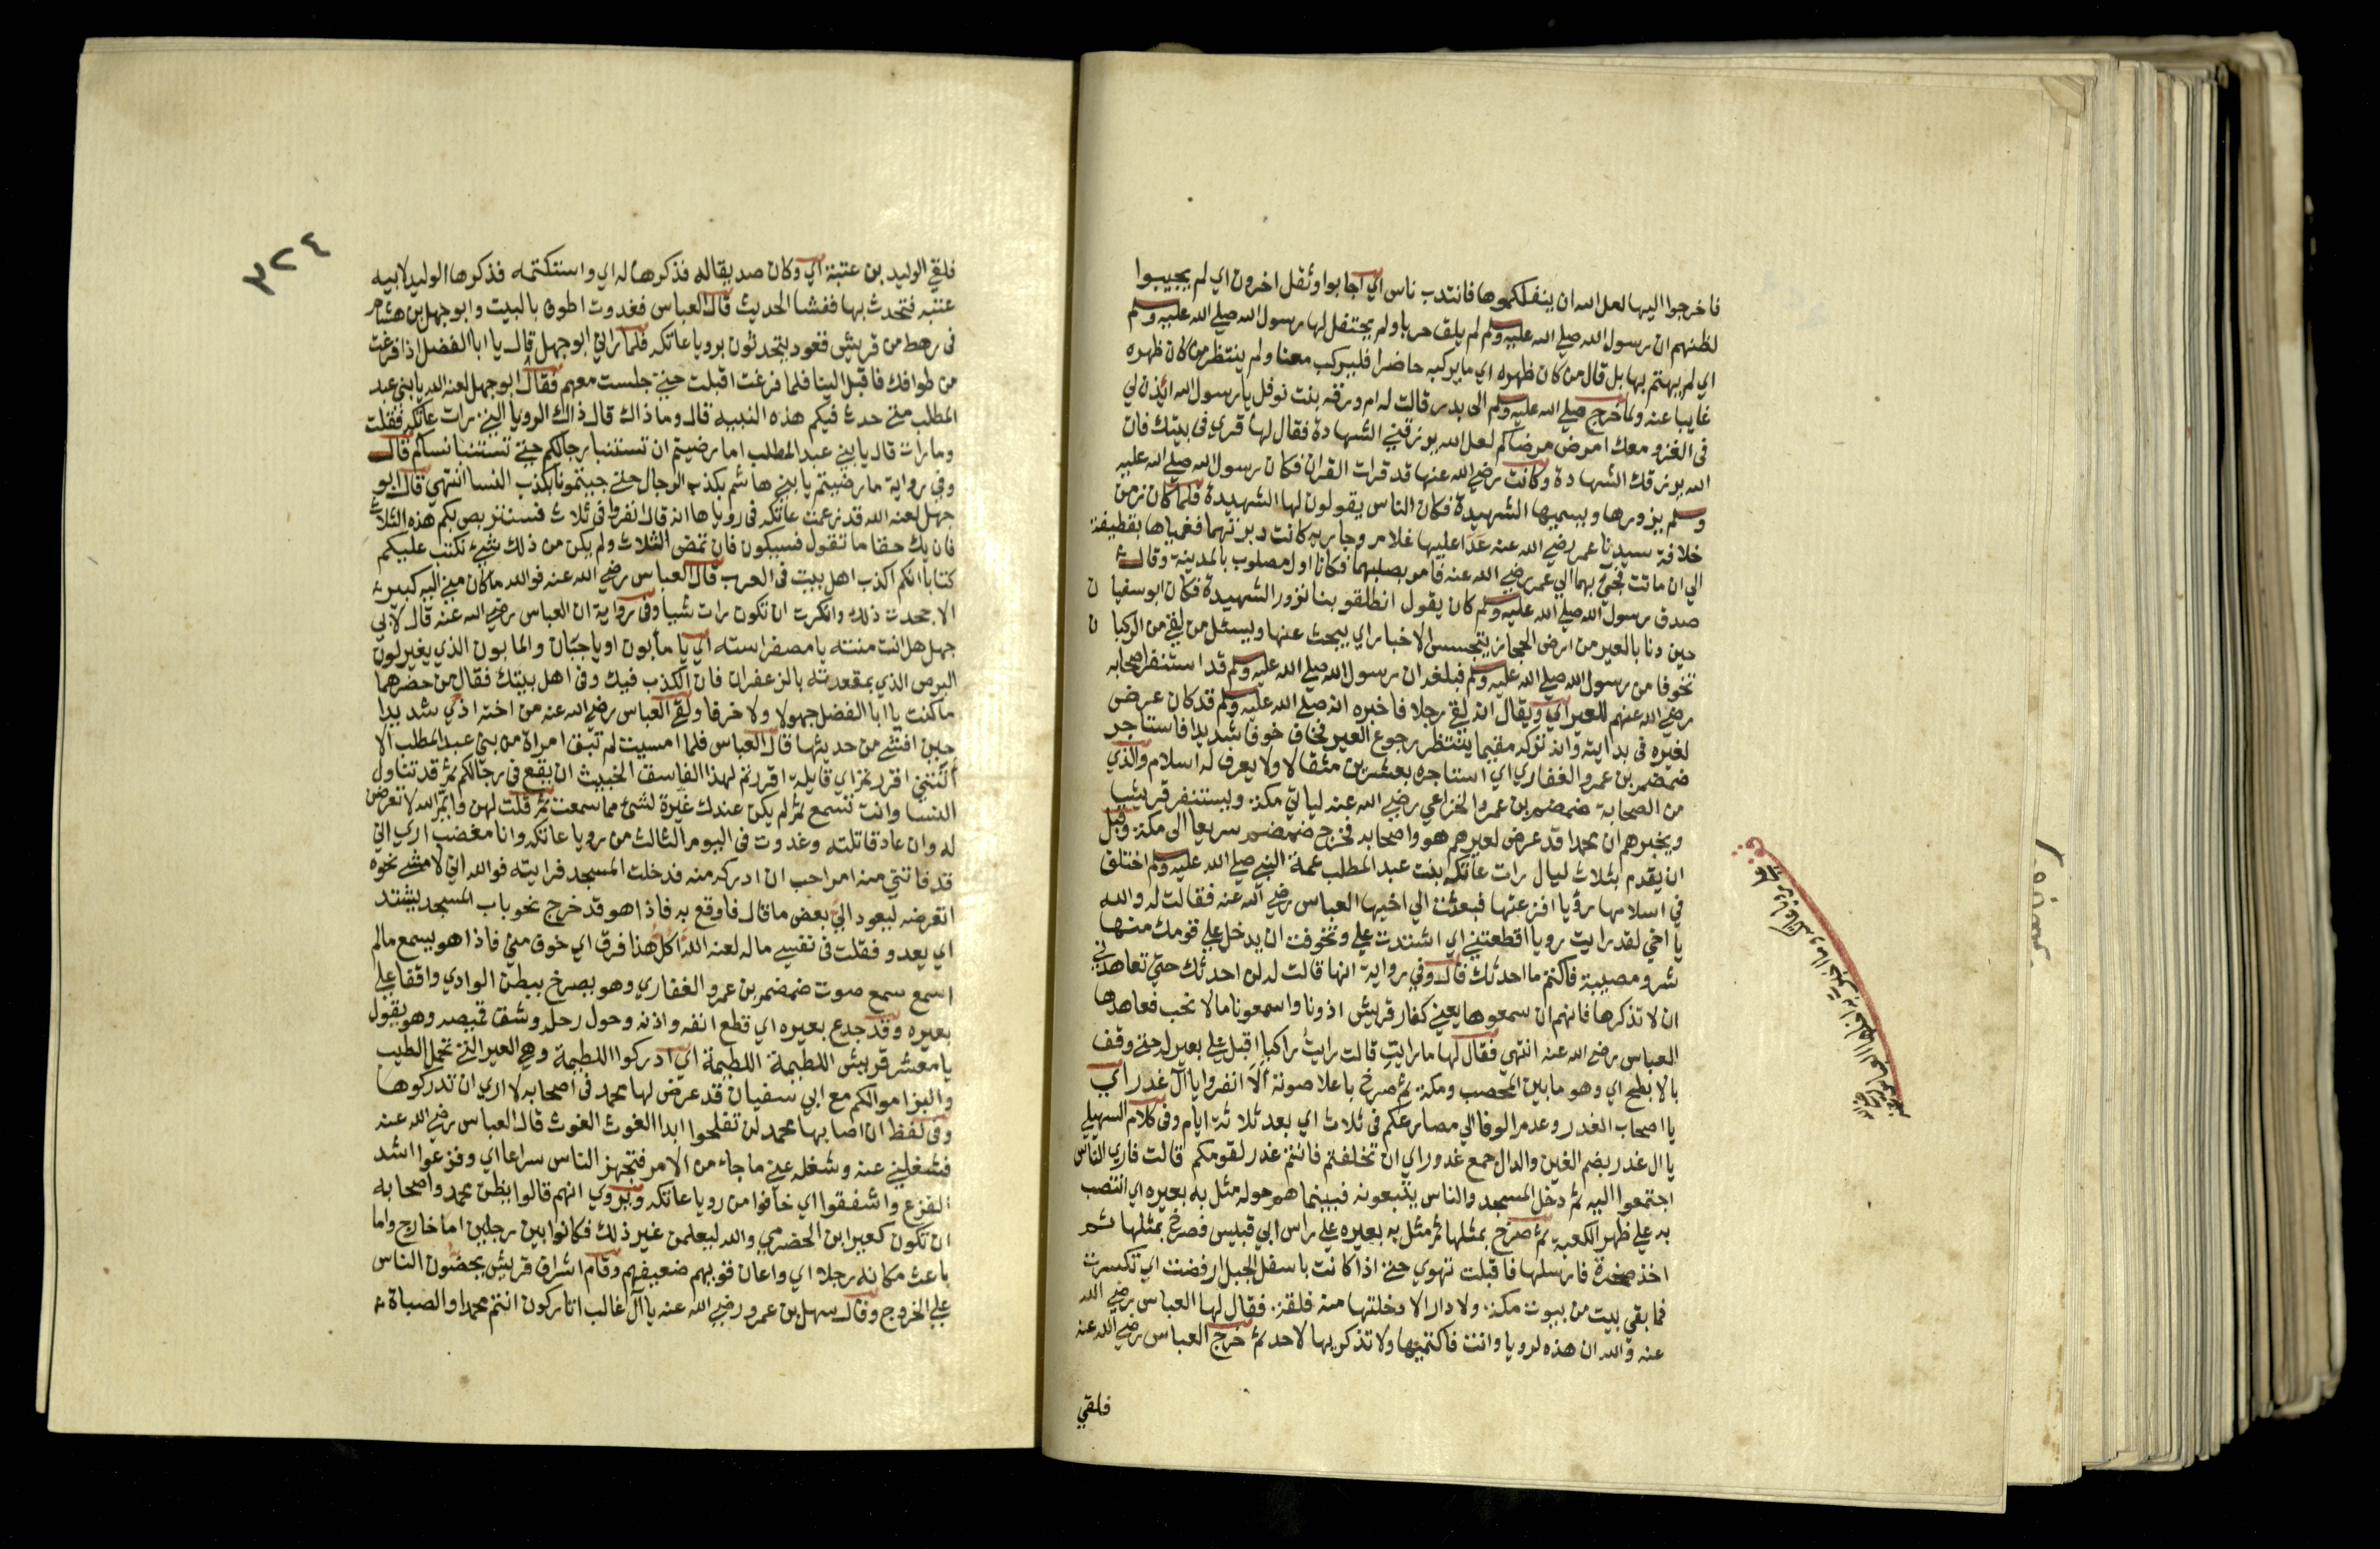 فاخرجوا اليها لعل الله ان ينفلكموها فانتدب ناس اي اجابوا وثقل اخرون اي لم يجيبوا
لظنهم ان رسول الله صلي الله عليه وسلم لم يلق حربا ولم يحتفل لها رسول الله صلي الله عليه وسلم
اي لم يهتم بها بل قال من كان ظهره اي ما يركبه حاضرا فليركب معنا ولم ينتظر من كان ظهره
غايبا عنه ولما خرج صلي الله عليه وسلم الي بدر قالت له ام ورقه بنت نوفل يا رسول الله ائذن لي
في الغزو معك امرض مرضاكم لعل الله يرزقني الشهادة فقال لها قري في بيتك فان
الله يرزقك الشهادة وكانت رضي الله عنها قد قرات القران فكان رسول الله صلي الله عليه
وسلم يزورها ويسميها الشهيدة فكان الناس يقولون لها الشهيدة فلما كان زمن
خلافة سيدنا عمر رضي الله عنه عدا عليها غلام وجاريه كانت دبرتهما فغمياها بقطيفة
الي ان ماتت فجئ بهما الي عمر رضي الله عنه فامر بصلبهما فكانا اول مصلوب بالمدينة وقال
صدق رسول الله صلي الله عليه وسلم كان يقول انطلقو بنا نزور الشهيدة فكان ابوسفيان
حين دنا بالعير من ارض الحجاز يتجسس الاخبار اي يبحث عنها ويسئل من لقي من الركبان
تخوفا من رسول الله صلي الله عليه وسلم فبلغه ان رسول الله صلي الله عليه وسلم قد استنفر اصحابه
رضي الله عنهم للعير اي ويقال انه لقي رجلا فاخبره انه صلي الله عليه وسلم قد كان عرض
لغيره في بدايته وانه تركه مقيما ينتظر رجوع العير فخاف خوفا شديدا فاستاجر
ضمضم بن عمرو الغفاري اي استاجره بعشرين مثقالا ولا يعرف له اسلام والذي
من الصحابة ضمضم بن عمرو الخزاعي رضي الله عنه لياتي مكة ويستنفر قريشا
ويخبرهم ان محمدا قد عرض لعيرهم هو واصحابه فخرج ضمضم سريعا الي مكة وقبل
ان يقدم بثلاث ليال رات عاتكه بنت عبد المطلب عمة النبي صلي الله عليه وسلم اختلف
في اسلامها رؤيا افزعتها فبعثت الي اخيها العباس رضي الله عنه فقالت له والله
يا اخي لقد رايت رويا اقطعتني اي اشتدت علي وتخوفت ان يدخل علي قومك منها
شر ومصيبة فاكتم ما احدثك قال وفي رواية انها قالت له لن احدثك حتي تعاهدني
ان لا تذكرها فانهم ان سمعوها يعني كفار قريش اذونا واسمعونا ما لا نحب فعاهدها
العباس رضي الله عنه انتهي فقال لها ما رايت قالت رايت راكبا اقبل علي بعير له حتي وقف
بالابطح اي وهو ما بين المحصب ومكة ثم صرخ باعلا صوته الا انفروا يا ال غدر اي
يا اصحاب الغدر وعدم الوفا الي مصارعكم في ثلاث اي بعد ثلاثة ايام وفي كلام السهيلي
يا ال غدر بضم الغين والدال جمع غدور اي ان تخلفتم فانتم غدر لقومكم قالت فاري الناس
اجتمعوا اليه ثم دخل المسجد والناس يتبعونه فبينما هم حوله مثل به بعيره اي انتصب
به علي ظهر الكعبة ثم صرخ بمثلها ثم مثل به بعيره علي راس ابي قبيس فصرخ بمثلها ثم
اخذ صخرة فارسلها فاقبلت تهوي حتي اذا كانت باسفل الجبل ارفضت اي تكسرت
فما بقي بيت من بيوت مكة ولا دار الا دخلتها منه فلقة فقال لها العباس رضي الله
عنه والله ان هذه لرويا وانت فاكتميها ولا تذكريها لاحد ثم خرج العباس رضي الله عنه
فلقي
قف
٣٢٤
فلقي الوليد بن عتبة اي وكان صديقا له فذكرها له اي واستكتمه فذكرها الوليد لابيه
عتبه فتحدث بها ففشا الحديث قال العباس فغدوت اطوف بالبيت وابو جهل بن هشام
في رهط من قريش قعود يتحدثون برويا عاتكه فلما راني ابو جهل قال يا ابا الفضل اذا فرغت
من طوافك فاقبل الينا فلما فرغت اقبلت حتي جلست معهم فقال ابو جهل لعنه الله يا بني عبد
المطلب متي حدث فيكم هذه النبيه قال وما ذاك قال ذاك الرويا التي رات عاتكه فقلت
وما رات قال يا بني عبد المطلب اما رضيتم ان تستنبا رجالكم حتي تستنبا نساكم قال
وفي رواية ما رضيتم يا بني هاشم بكذب الرجال حتي جيتمونا بكذب النسا انتهي قال ابو
جهل لعنه الله قد زعمت عاتكه في روياها انه قال انفروا في ثلاث فسنتربص بكم هذه الثلاث
فان يك حقا ما تقول فسيكون فان تمض الثلاث ولم يكن من ذلك شيء نكتب عليكم
كتابا انكم اكذب اهل بيت في العرب قال العباس رضي الله عنه فوالله ما كان مني اليه كبير
الا جحدت ذلك وانكرت ان تكون رات شيا وفي رواية ان العباس رضي الله عنه قال لابي
جهل هل انت منته يا مصفر استه اي يا مابون او يا جبان والمابون الذي يغير لون
البرص الذي بمقعدته بالزعفران فان الكذب فيك وفي اهل بيتك فقال من حضرهما
ما كنت يا ابا الفضل جهولا ولا خرقا ولقي العباس رضي الله عنه من اخته اذي شديدا
حين افشي من حديثها قال العباس فلما امسيت لم تبق امراة من بني عبد المطلب الا
اتتني اقررتم اي قايلة اقررتم لهذا الفاسق الخبيث ان يقع في رجالكم ثم قد تناول
النسا وانت تسمع ثم لم يكن عندك غيرة لشئ مما سمعت ثم قلت لهن وايم الله لاتعرض
له وان عاد قاتلته وغدوت في اليوم الثالث من رويا عاتكه وانا مغضب اري اني
قد فاتني منه امر احب ان ادركه منه فدخلت المسجد فرايته فوالله اني لامشي نحوه
اتعرضه ليعود الي بعض ما قال فاوقع به فاذا هو قد خرج نحو باب المسجد يشتد
اي يعدو فقلت في نفسي ما له لعنه الله اكل هذا فرق اي خوف مني فاذا هو يسمع ما لم
اسمع سمع صوت ضمضم بن عمرو الغفاري وهو يصرخ ببطن الوادي واقفا علي
بعيره وقد جدع بعيره اي قطع انفه واذنه وحول رحله وشق قميصه وهو يقول
يا معشر قريش اللطيمة اللطيمة اي ادركوا اللطيمة وهي العير التي تحمل الطيب
والبز اموالكم مع ابي سفيان قد عرض لها محمد في اصحابه لا اري ان تدركوها
وفي لفظ ان اصابها محمد لن تفلحوا ابدا الغوث الغوث قال العباس رضي الله عنه
فشغلني عنه وشغله عني ما جاء من الامر فتجهز الناس سراعا اي وفزعوا اشد
الفزع واشفقوا اي خافوا من رويا عاتكه ويروي انهم قالوا يظن محمد واصحابه
ان تكون كعير ابن الحضرمي والله ليعلمن غير ذلك فكانوا بين رجلين اما خارج واما
باعث مكانه رجلا اي واعان قويهم ضعيفهم وقام اشراف قريش يحضون الناس
علي الخروج وقال سهل بن عمرو رضي الله عنه يا آل غالب اتاركون انتم محمدا والصباة